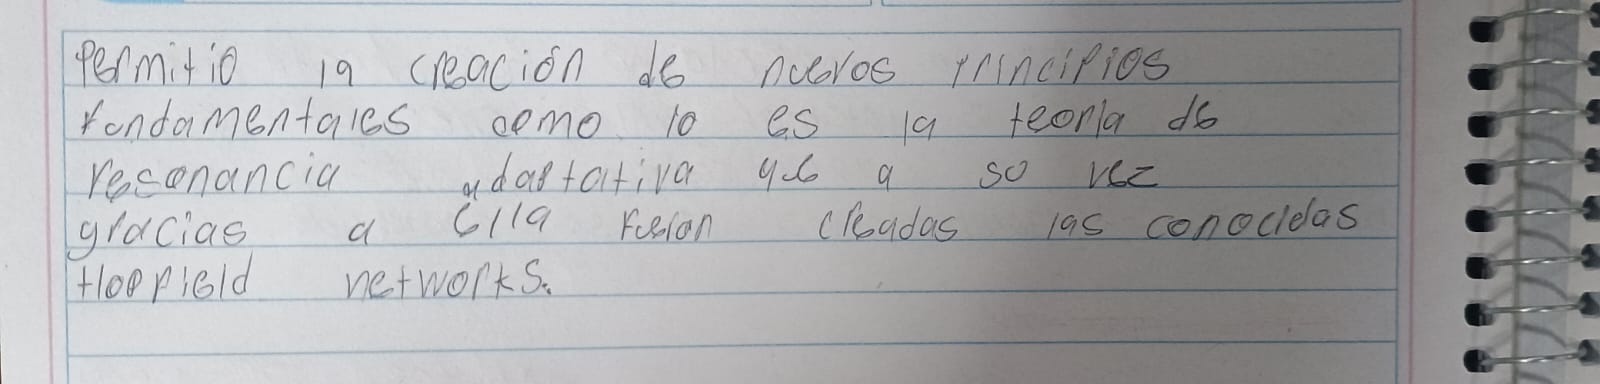 Permitio la creación de nuevos principios
fundamentales como lo es la teoria de
resonancia adaptativa que a so vez
gracias a ella fueron creadas las conocidas
Hoopfield networks.